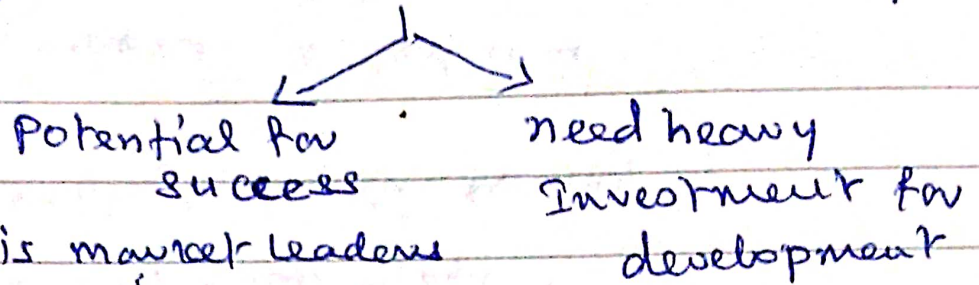 Potential for
success
is market leaders
need heavy
Investment for
development